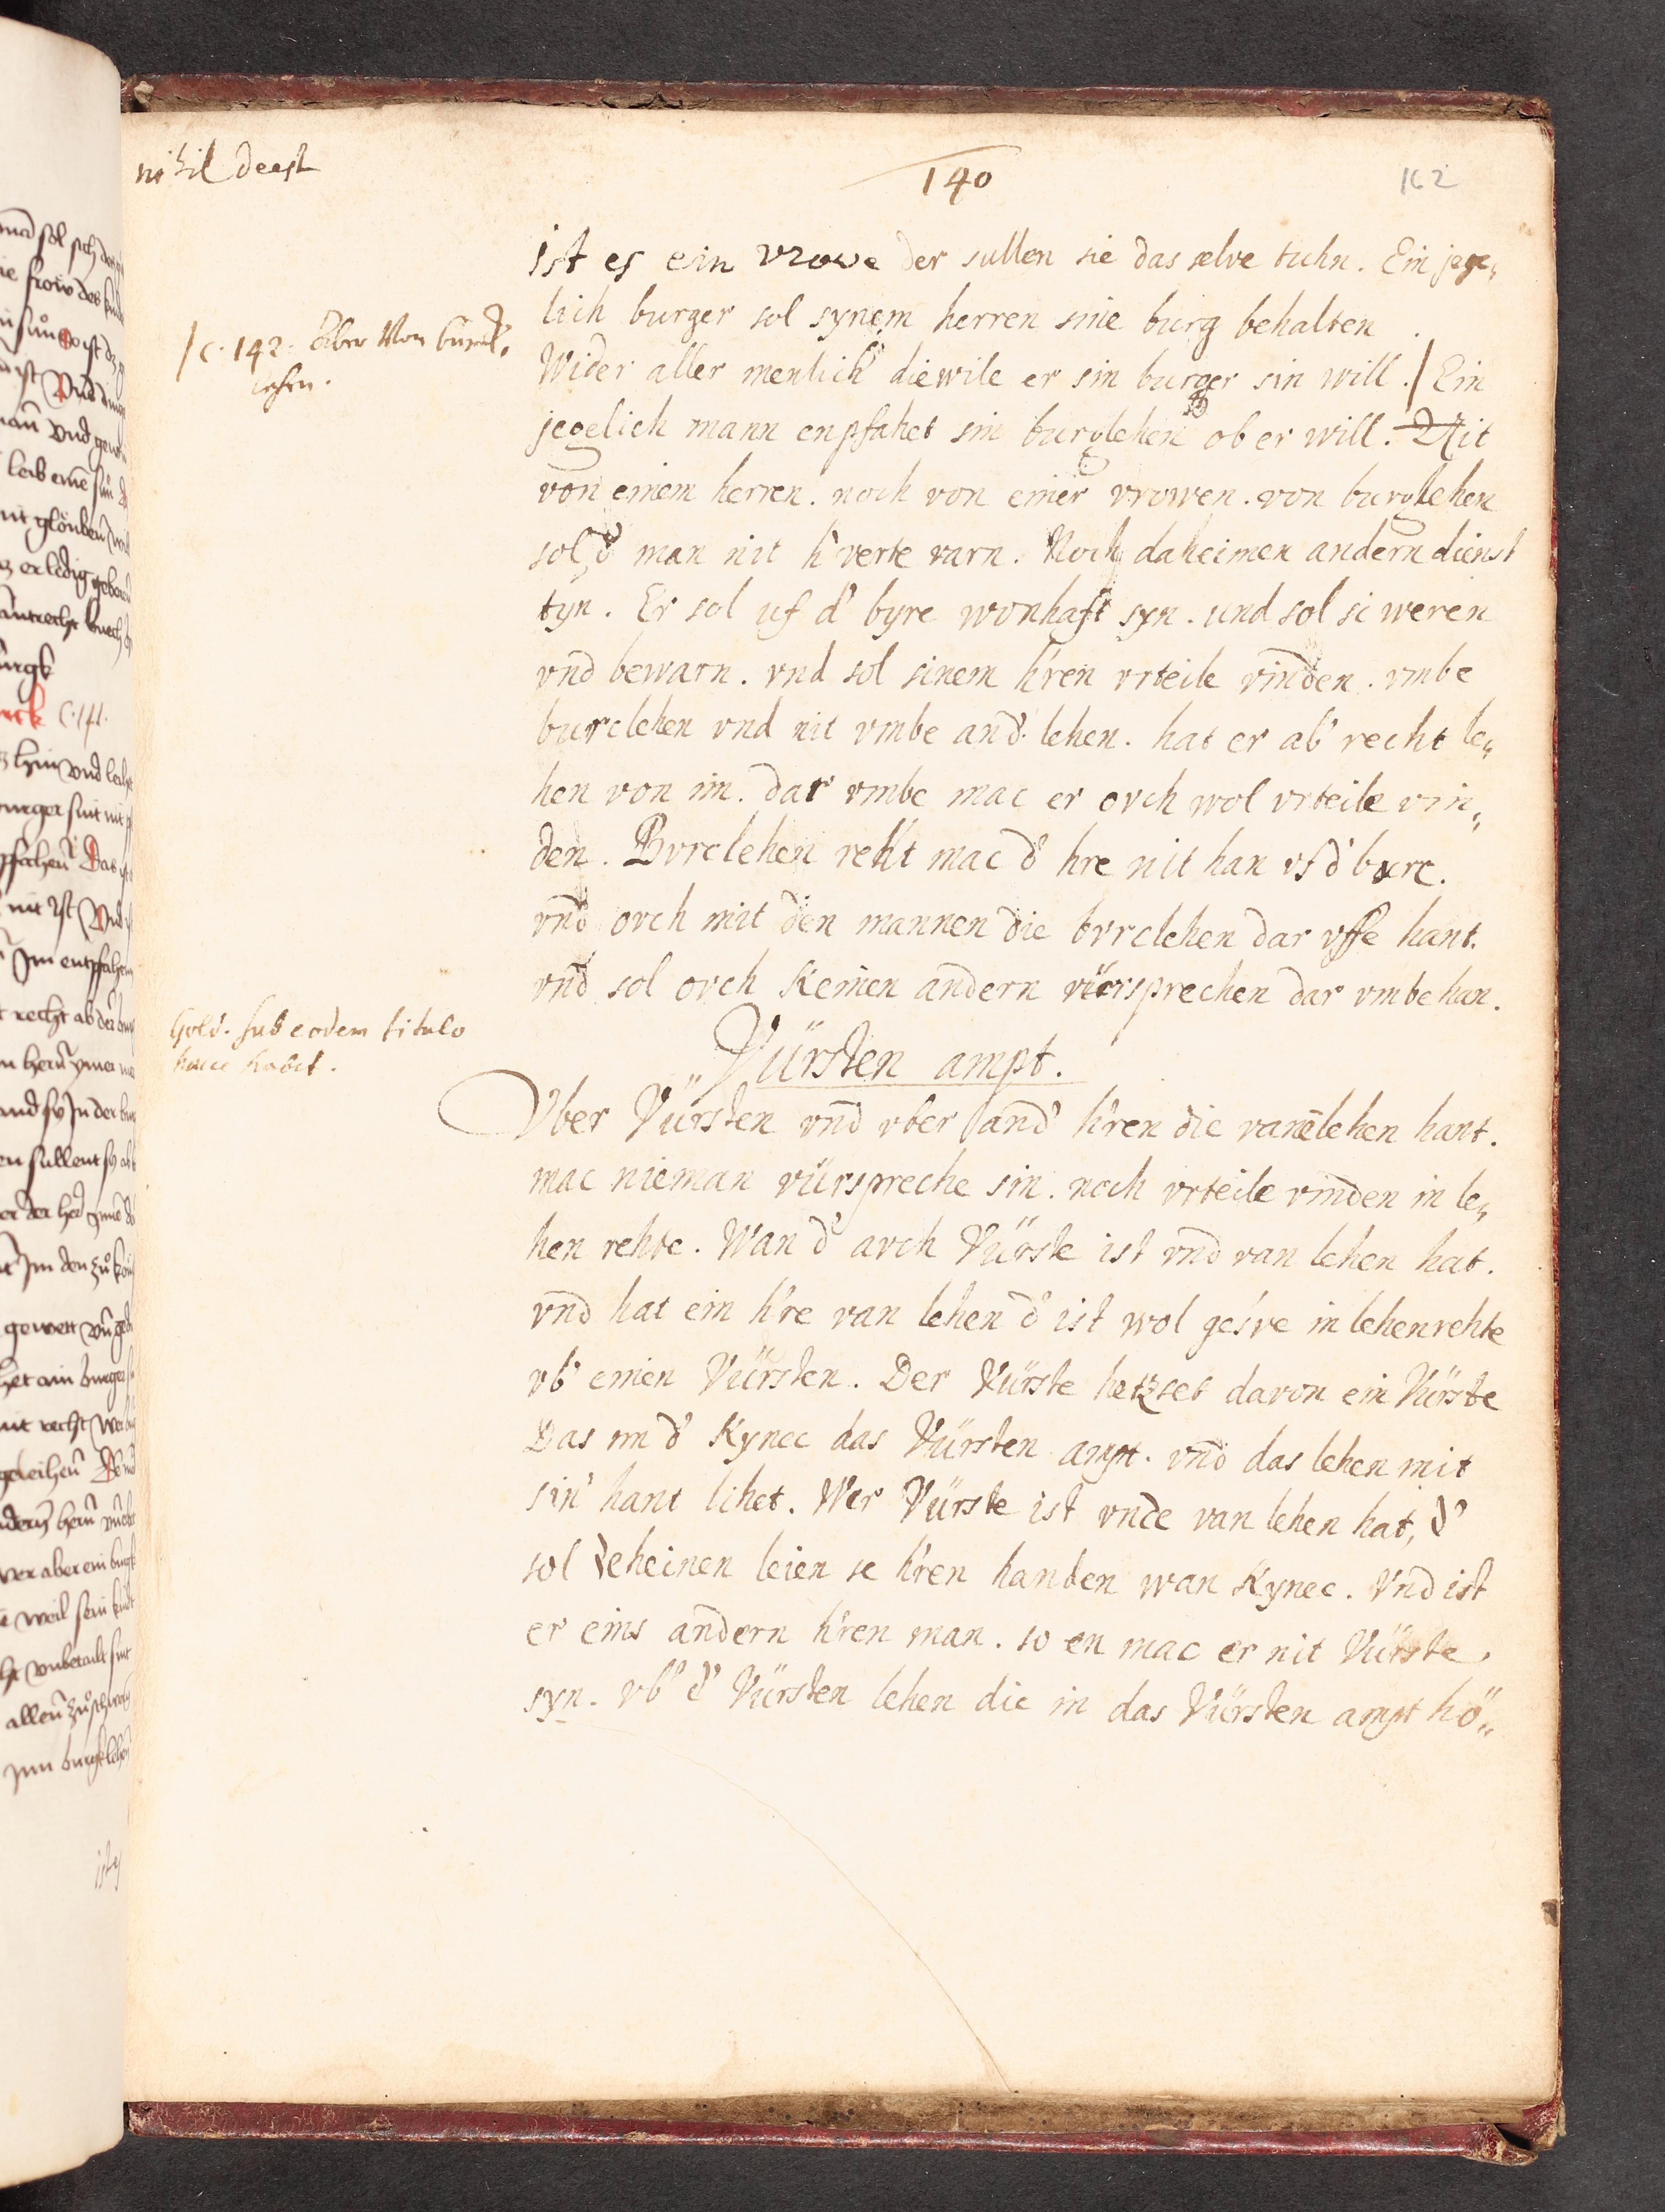 nihil deest
140
162
ist es ein vrowe der sullen sie das selve tuhn. Ein jege„
lich burger sol synem herren sine burg behalten .
Wider aller menlich' diewile er sin burger sin will. / Ein
/ c. 142. Aber Von
lehen.
jegelich mann enpfahet sin burglehen ob er will. Nit
von einem herren. noch von einer vrowen. von burglehen
sol d' man nit h'verte varn. Noch daheimen andern dienst
tyn. Er sol uf d' byrc wonhaft syn. und sol si weren
vnd bewarn. vnd sol sinem h'ren vrteile vinden. vmbe
burclehen vnd nit vmbe and' lehen. hat er ab' recht le„
hen von im. dar vmbe mac er ovch wol vrteile vin„
den. Bvrclehen reht mac d' hre nit han vf d' burc.
vnd ovch mit den mannen die bvrclehen dar vffe hant.
vnd sol ovch keinen andern vürsprechen dar vmbe han.
Gold. sub eodem titulo
haec habet.
Vürsten ampt.
Vber Vürsten vnd vber and' h'ren die vanelehen hant.
mac nieman vürspreche sin. noch vrteile vinden in le„
hen rehte. Wan d' avch Vürste ist vnd van lehen hat.
vnd hat ein h're van lehen d' ist wol gezve in lehenrehte
vb' einen Vürsten. Der Vürste heizset davon ein Vürste
Das im d' Kynec das Vürsten ampt. vnd das lehen mit
sin' hant lihet. Wer Vürste ist vnde van lehen hat, d'
sol deheinen leien ze h'ren handen wan Kynec. Vnd ist
er eins andern h'ren man. so en mac er nit Vürste
syn. vb' d' Vürsten lehen die in das Vürsten ampt hö„